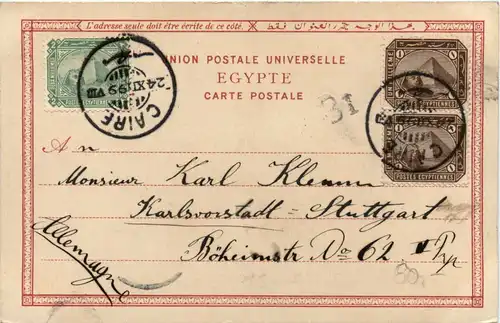 L'adresse seule doit être écrite de ce côté.
UNION POSTALE UNIVERSELLE
EGYPTE
CARTE POSTALE
CAIRE
24 XI 99 VIII
POSTES EGYPTIENNES
31
An
Monsieur Karl Klemm
Karlsvorstadt - Stuttgart
Böheimstr No 62
Allemagne